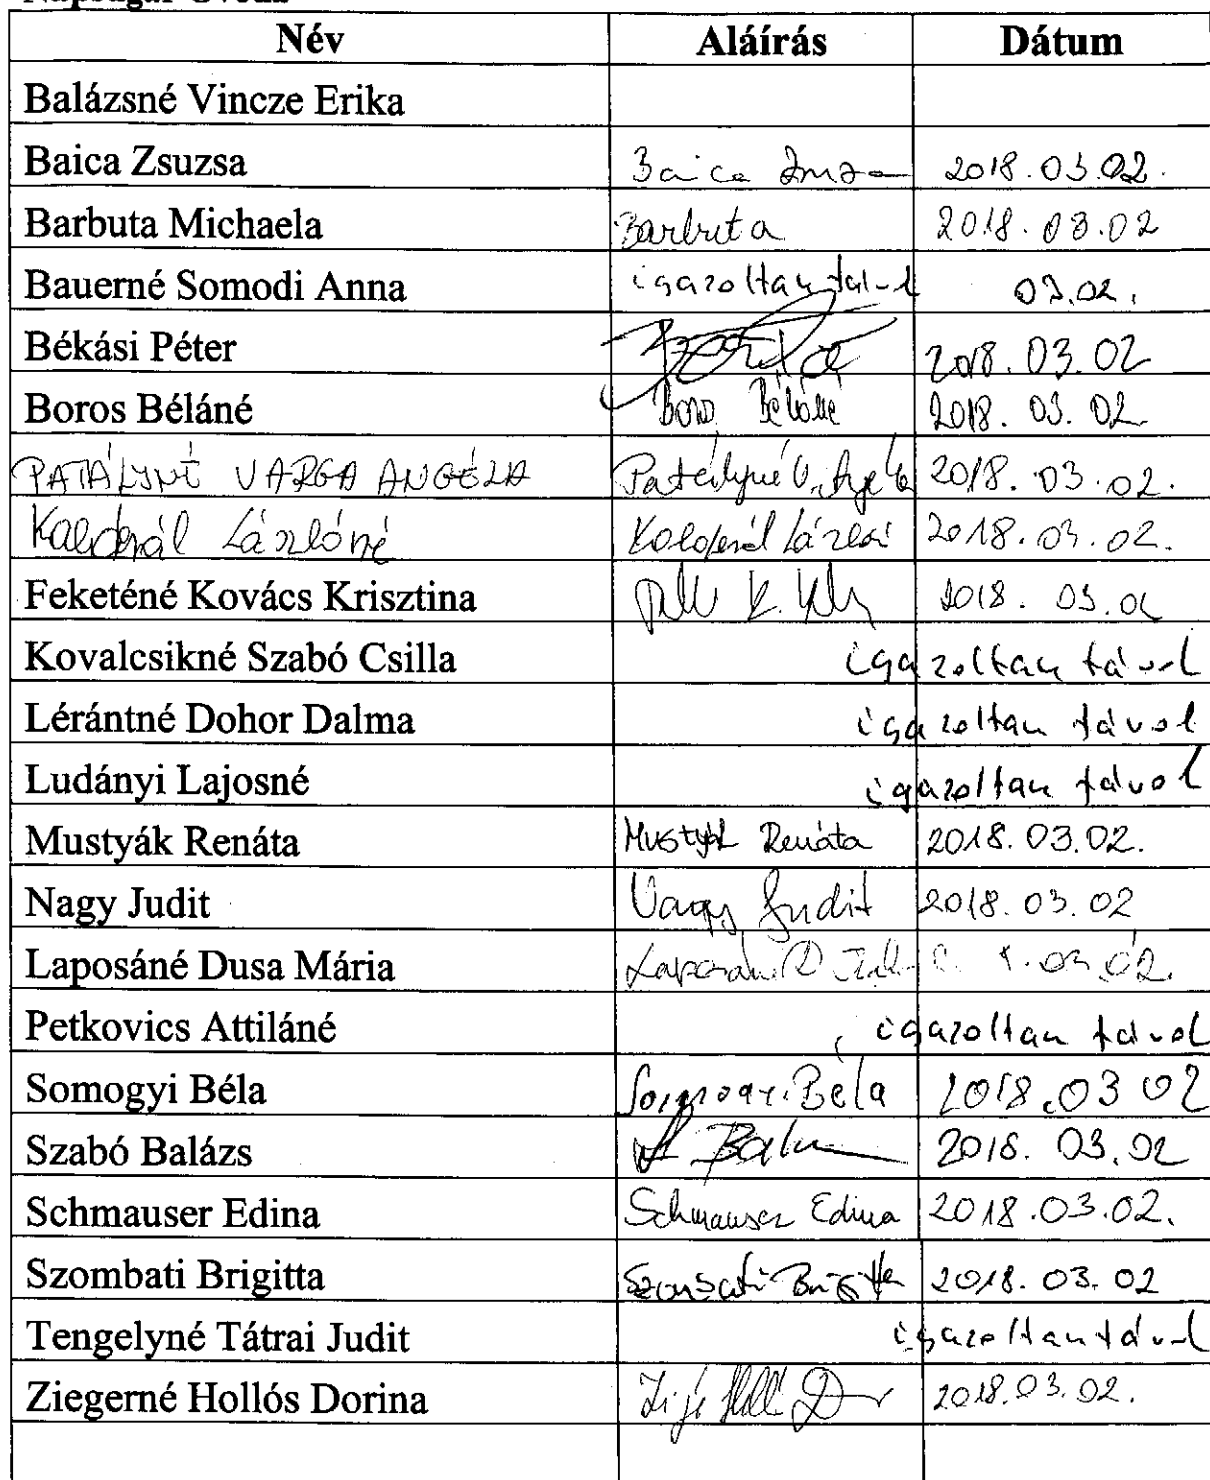 Napsugár Óvoda
Név Aláírás Dátum
Balázsné Vincze Erika
Baica Zsuzsa Baica Zsuzsa 2018.03.02.
Barbuta Michaela Barbuta 2018.03.02
Bauerné Somodi Anna igazoltan távol 03.02.
Békási Péter 2018.03.02
Boros Béláné Boros Béláné 2018. 03. 02.
PATÁLYNÉ VARGA ANGÉLA Patályné V. Angéla 2018. 03. 02.
Kalderál Lászlóné Kalderál László 2018. 03. 02.
Feketéné Kovács Krisztina 2018. 03. 02
Kovalcsikné Szabó Csilla igazoltan távol
Lérántné Dohor Dalma igazoltan távol
Ludányi Lajosné igazoltan távol
Mustyák Renáta Mustyák Renáta 2018. 03.02.
Nagy Judit Nagy Judit 2018. 03. 02
Laposáné Dusa Mária Laposáné D 03.02.
Petkovics Attiláné igazoltan távol
Somogyi Béla Somogyi Béla 2018.03 02
Szabó Balázs 2018. 03. 02
Schmauser Edina Schmauser Edina 2018.03.02.
Szombati Brigitta Szombati Brigitta 2018. 03. 02
Tengelyné Tátrai Judit igazoltan távol
Ziegerné Hollós Dorina 2018.03.02.